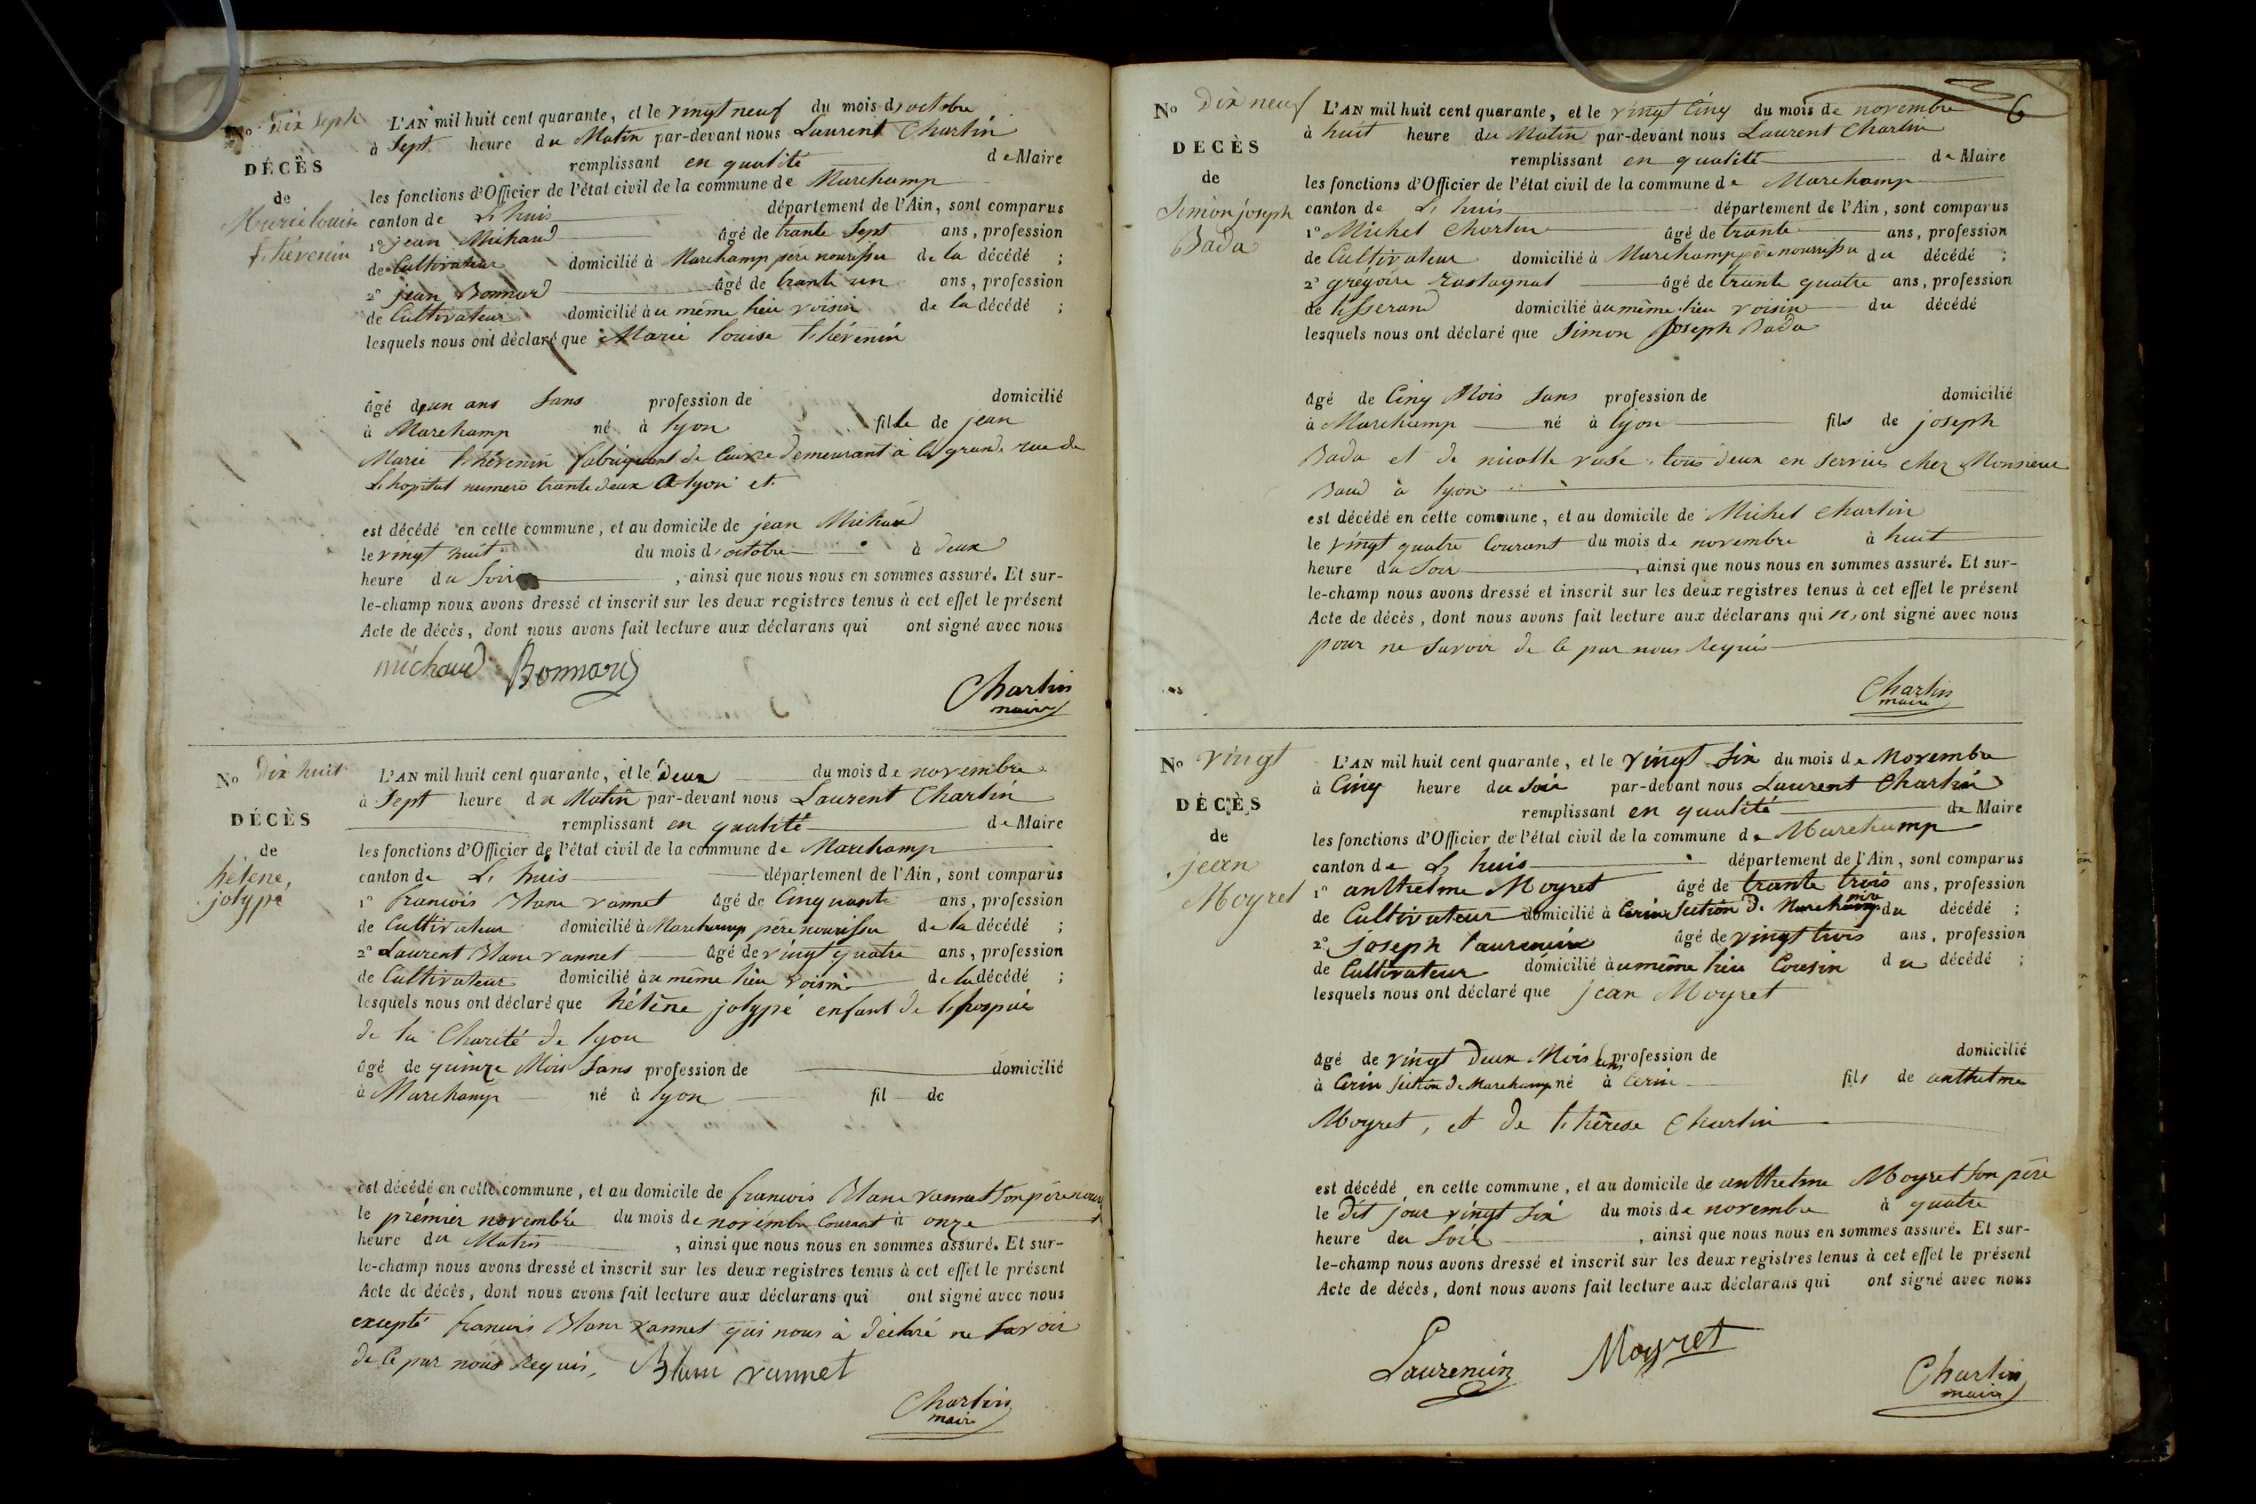 No Dix Sept
DÉCÈS
de
Marie louise
thévenin
L'AN mil huit cent quarante, et le vingt neuf du mois d'octobre
à Sept heure du Matin par-devant nous Laurent Charlin
remplissant en qualité de Maire
les fonctions d'Officier de l'état civil de la commune de Marchamp
canton de L'huis département de l'Ain, sont comparus
1o jean Michaud âgé de trante Sept ans, profession
de Cultivateur domicilié à Marchamp père nourissier de la décédé ;
2o jean Bonnard âgé de trante un ans, profession
de Cultivateur domicilié au même lieu voisin de la décédé ;
lesquels nous ont déclaré que Marie louise thévenin
âgé d'un ans Sans profession de domicilié
à Marchamp né à lyon fille de jean
Marie thévenin fabriquant de Cuivre demeurant à la grande rue de
L'hopital numero trante deux a lyon et
est décédé en cette commune, et au domicile de jean Michaud
le vingt huit du mois d'octobre à deux
heure du Soir, ainsi que nous nous en sommes assuré. Et sur-
le-champ nous avons dressé et inscrit sur les deux registres tenus à cet effet le présent
Acte de décès, dont nous avons fait lecture aux déclarans qui ont signé avec nous
michaud Bonnard
Charlin
maire
No Dix huit
DÉCÈS
de
hélène,
jolypé
L'AN mil huit cent quarante, et le Deux du mois de novembre
à Sept heure du Matin par-devant nous Laurent Charlin
remplissant en qualité de Maire
les fonctions d'Officier de l'état civil de la commune de Marchamp
canton de L'huis département de l'Ain, sont comparus
1o francois Blanc vannet âgé de Cinquante ans, profession
de Cultivateur domicilié à Marchamp père nourissier de la décédé ;
2o Laurent Blanc vannet âgé de vingt quatre ans, profession
de Cultivateur domicilié au même lieu voisin de la décédé ;
lesquels nous ont déclaré que hélène jolypé enfant de l'hospice
de la Charité de lyon
âgé de quinze Mois Sans profession de domicilié
à Marchamp né à lyon fil de
est décédé en cette commune, et au domicile de francois Blanc vannet Son père nour
le prémier novembre du mois de novembre Courant à onze
heure du Matin, ainsi que nous nous en sommes assuré. Et sur-
le-champ nous avons dressé et inscrit sur les deux registres tenus à cet effet le présent
Acte de décès, dont nous avons fait lecture aux déclarans qui ont signé avec nous
excepté francois Blanc vannet qui nous à déclaré ne Savoir
de Ce par nous Requis, Blanc vannet
Charlin
maire
6
No Dix neuf
DÉCÈS
de
Simon joseph
Bada
L'AN mil huit cent quarante, et le vingt Cinq du mois de novembre
à huit heure du Matin par-devant nous Laurent Charlin
remplissant en qualité de Maire
les fonctions d'Officier de l'état civil de la commune de Marchamp
canton de L'huis département de l'Ain, sont comparus
1o Michel Charlin âgé de trante ans, profession
de Cultivateur domicilié à Marchamp père nourrissier du décédé ;
2o grégoire rastagnat âgé de trante quatre ans, profession
de tisserand domicilié au même lieu voisin du décédé
lesquels nous ont déclaré que Simon Joseph Bada
âgé de Cinq Mois Sans profession de domicilié
à Marchamp né à lyon fils de joseph
Bada et de nicolle rose tous deux en services chez Monsieur
Baud à lyon
est décédé en cette commune, et au domicile de Michel Charlin
le vingt quatre Courant du mois de novembre à huit
heure du Soir, ainsi que nous nous en sommes assuré. Et sur-
le-champ nous avons dressé et inscrit sur les deux registres tenus à cet effet le présent
Acte de décès, dont nous avons fait lecture aux déclarans qui n'ont signé avec nous
pour ne Savoir de Ce par nous Requis
Charlin
maire
No vingt
DÉCÈS
de
jean
Moyret
L'AN mil huit cent quarante, et le vingt Six du mois de Novembre
à Cinq heure du Soir par-devant nous Laurent Charlin
remplissant en qualité de Maire
les fonctions d'Officier de l'état civil de la commune de Marchamp
canton de L'huis département de l'Ain, sont comparus
1o anthelme Moyret âgé de trante trois ans, profession
de Cultivateur domicilié à Cerin Section de Marchamp père du décédé ;
2o joseph laurencin âgé de vingt trois ans, profession
de Cultivateur domicilié au même lieu Cousin du décédé ;
lesquels nous ont déclaré que jean Moyret
âgé de vingt Deux Mois Sans profession de domicilié
à Cerin Section de Marchamp né à Cerin fils de anthelme
Moyret, et de thérese Charlin
est décédé en cette commune, et au domicile de anthelme Moyret Son père
le Dit jour vingt Six du mois de novembre à quatre
heure du Soir, ainsi que nous nous en sommes assuré. Et sur-
le-champ nous avons dressé et inscrit sur les deux registres tenus à cet effet le présent
Acte de décès, dont nous avons fait lecture aux déclarans qui ont signé avec nous
Laurencin Moyret
Charlin
maire